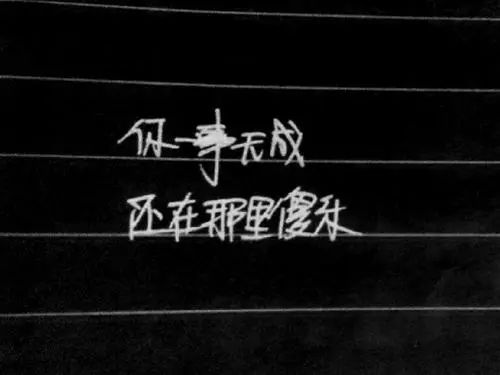 你一事无成
还在那里傻乐